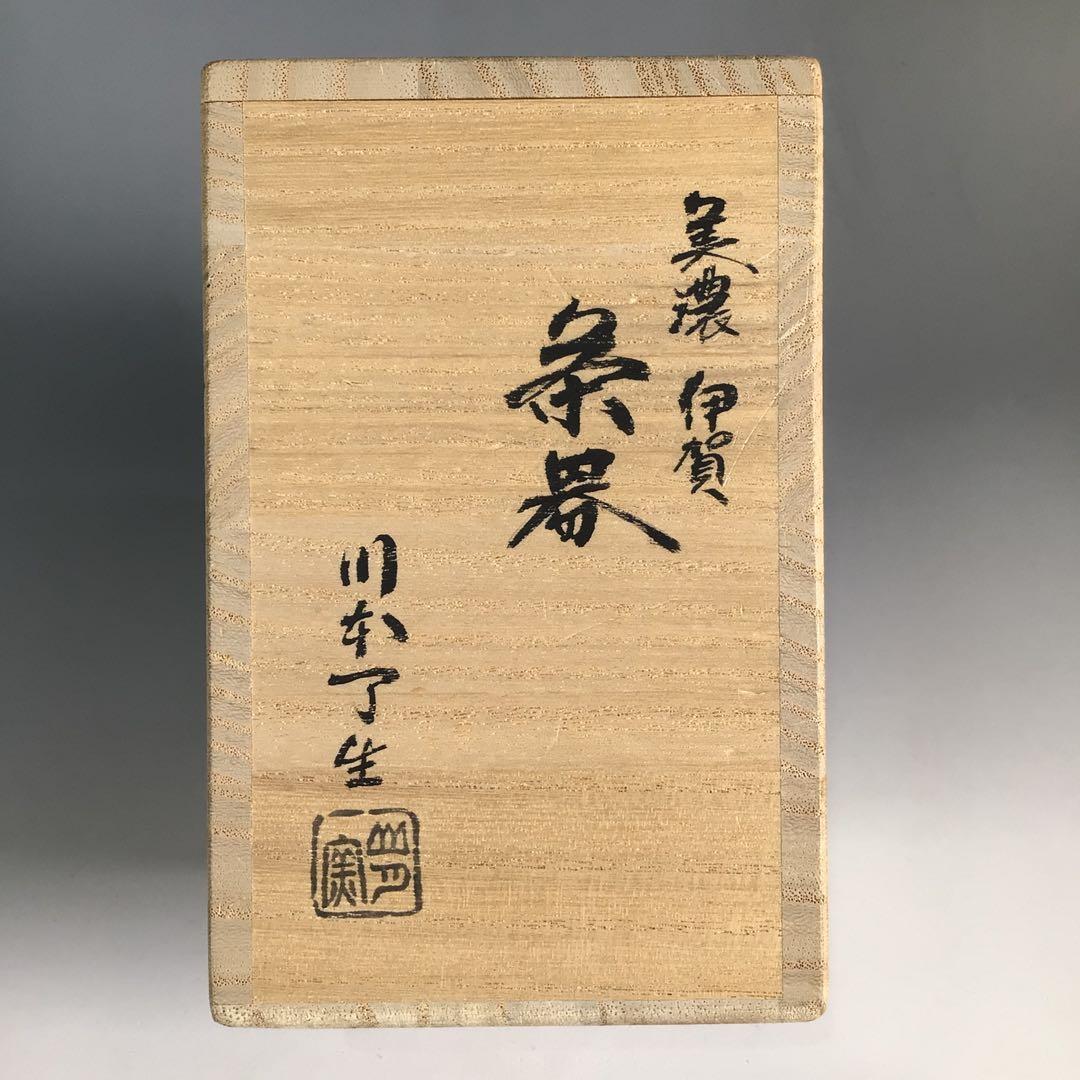 美濃 伊賀
茶器
川本了生